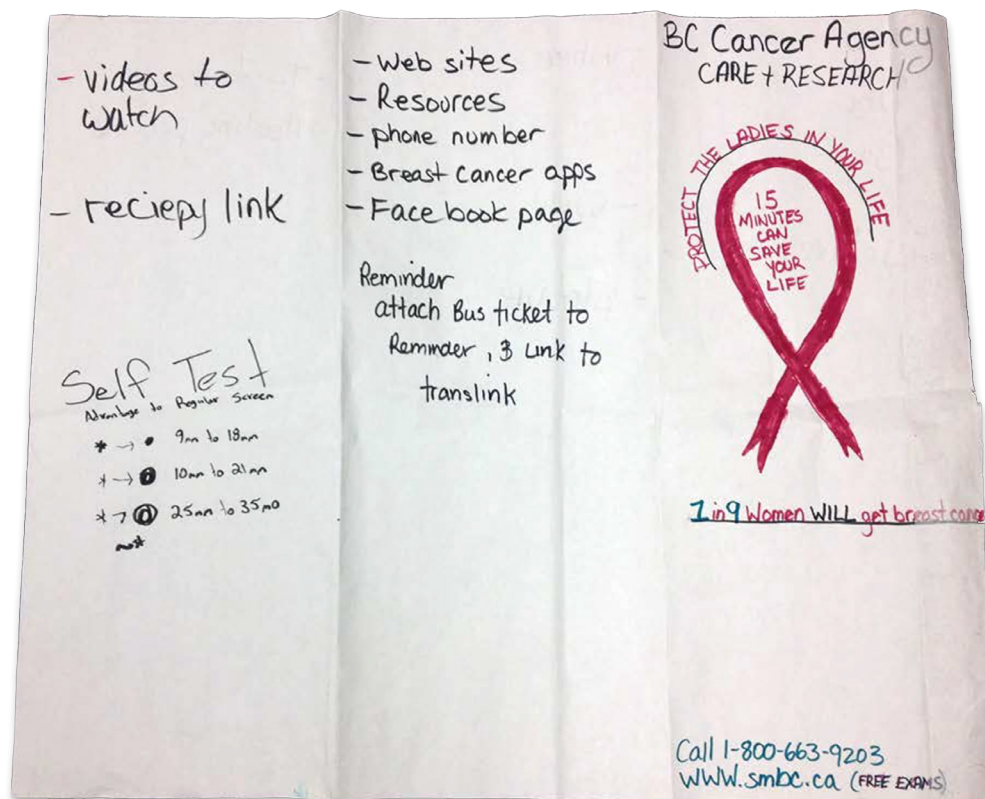 - videos to
watch
- reciepy link
Self Test
Advantage to Regular Screen
* → 9mm to 18mm
* → 10mm to 21mm
* → 25mm to 35mo
- Web sites
- Resources
- phone number
- Breast Cancer apps
- Facebook page
Reminder
attach Bus ticket to
Reminder, & Link to
translink
BC Cancer Agency
CARE + RESEARCH
PROTECT THE LADIES IN YOUR LIFE
15
MINUTES
CAN
SAVE
YOUR
LIFE
1 in 9 Women WILL get breast cance
Call 1-800-663-9203
WWW.smbc.ca (FREE EXAMS)